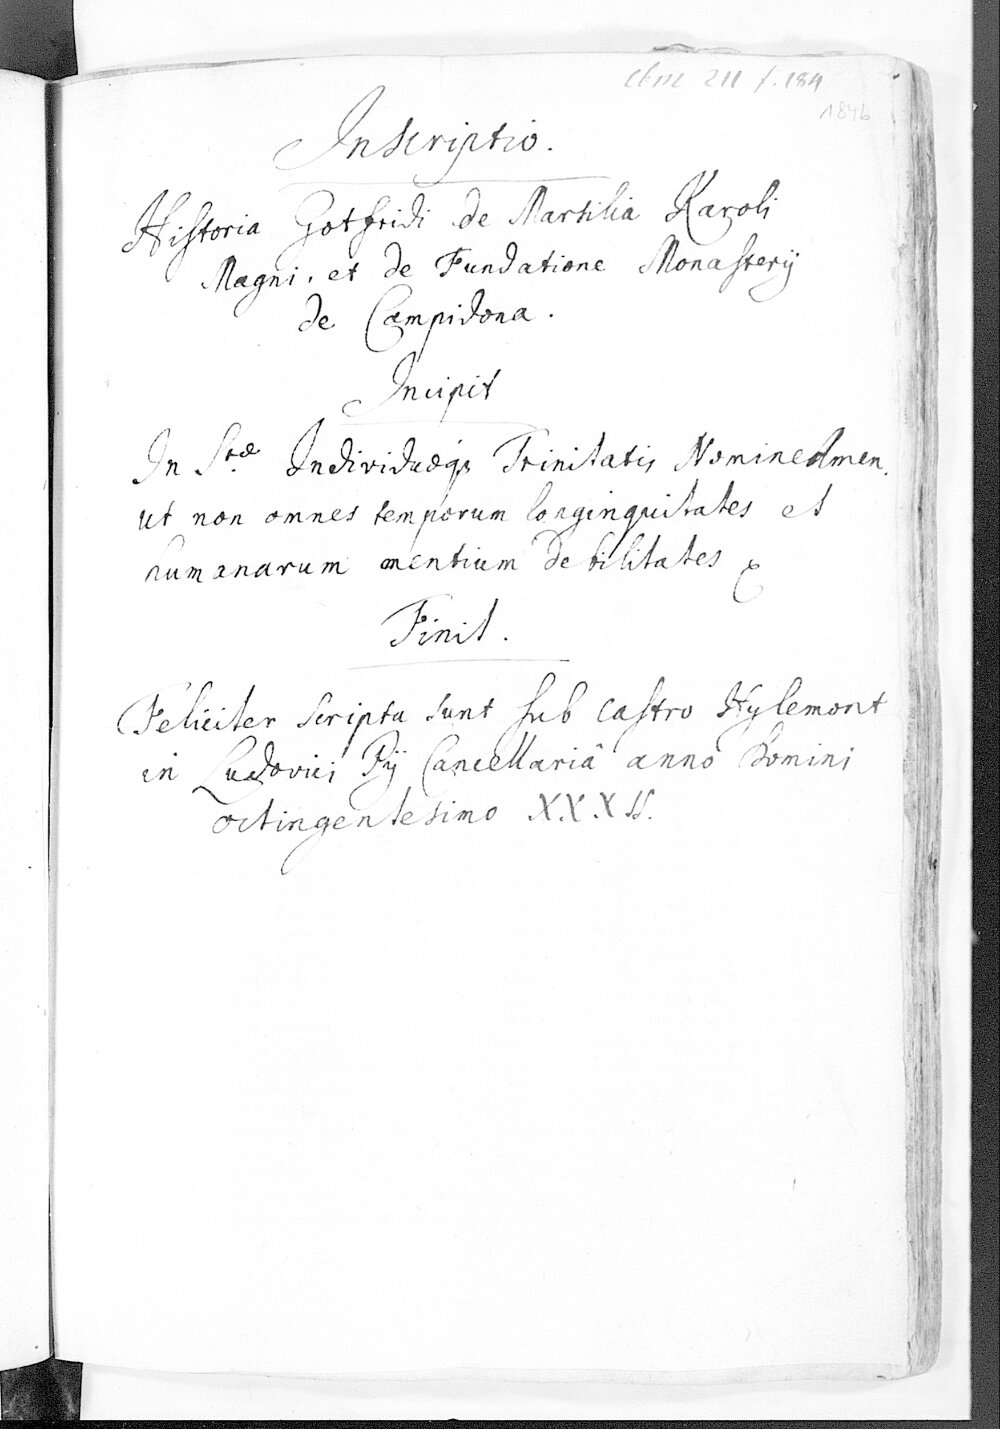 cbm 211 f. 184
184b
Inscriptio.
Historia Gotfridi de Marsilia Karoli
Magni, et de Fundatione Monasterij
de Campidona.
Incipit
In Stæ Individuæq3 Trinitatis Nomine Amen.
ut non omnes temporum longinquitates et
humanarum mentium debilitates
Finit.
Feliciter scripta sunt sub castro Hylemont
in Ludovici Pij Cancellariâ anno Domini
octingentesimo X.X.X II.